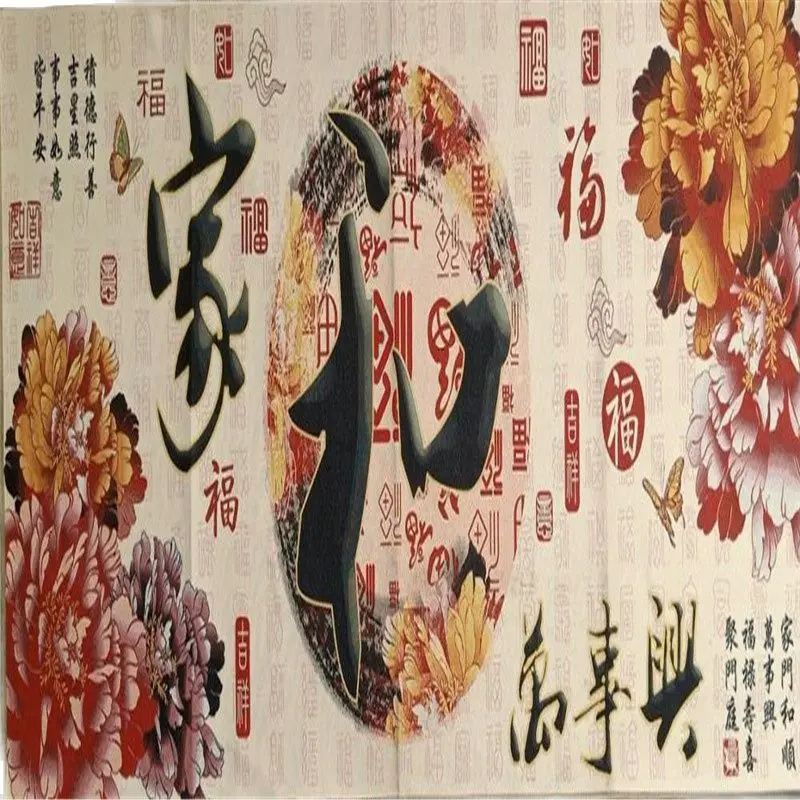 家和
萬事興
積德行善
吉星照
事事如意
皆平安
吉祥
如意
福
福
福
福
福
福
吉祥
吉祥
家門和順
萬事興
福祿壽喜
聚門庭